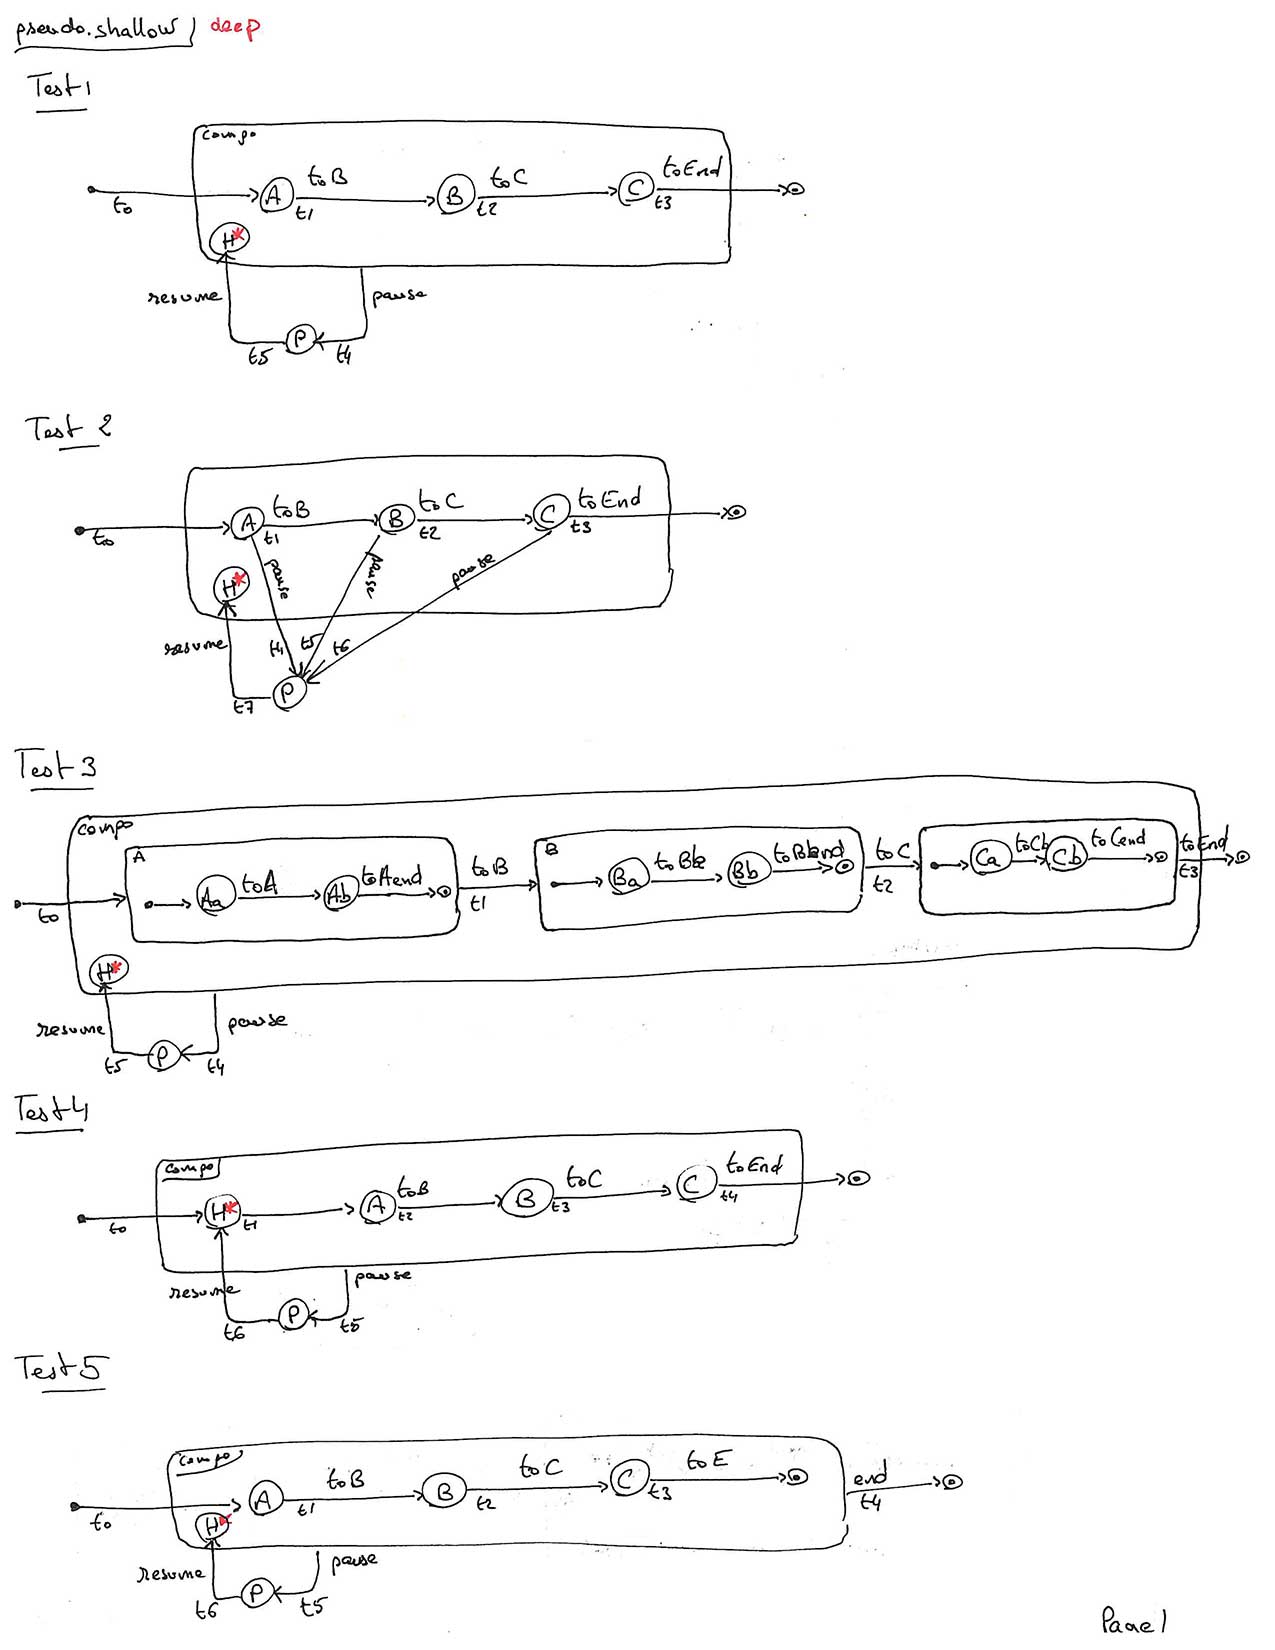 pseudo.shallow / deep
Test 1
compo
to A toB t1 B toC t2 C toEnd t3
H*
resume pause
t5 P t4
Test 2
to A toB t1 B toC t2 C toEnd t3
H* pause pause pause
resume t4 t5 t6
t7 P
Test 3
compo
A B
to Aa toA Ab toAend toB t1 Ba Bb toC t2 Ca toCb Cb toCend toEnd t3
H*
resume pause
t5 P t4
Test 4
compo
to H* t1 A toB t2 B toC t3 C toEnd t4
resume pause
t6 P t5
Test 5
compo
to A toB t1 B toC t2 C toE t3 end t4
H*
resume pause
t6 P t5
Page 1